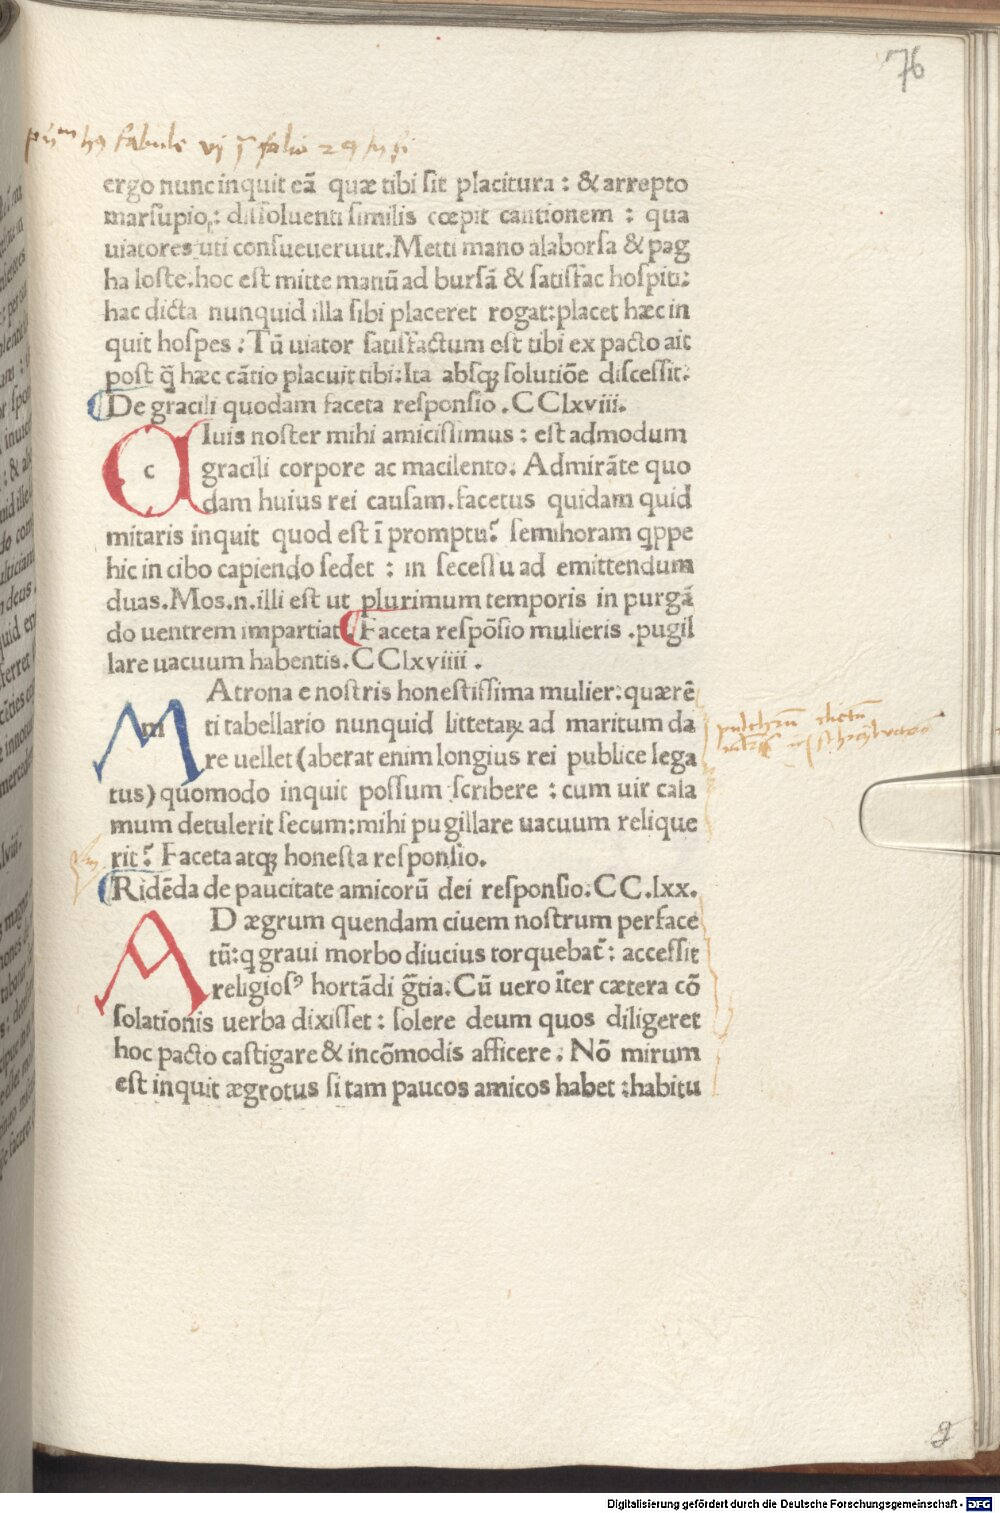 76
fabule vj folio 29
ergo nunc inquit eã quæ tibi sit placitura : & arrepto
marsupio,: dissoluenti similis cœpit cantionem : qua
uiatores uti consueueruut. Metti mano alaborsa & pag
ha loste.hoc est mitte manũ ad bursã & satisfac hospiti:
hac dicta nunquid illa sibi placeret rogat:placet hæc in
quit hospes : Tũ uiator satisfactum est tibi ex pacto ait
post q̃ hæc cãtio placuit tibi:Ita absqꝫ solutiõe discessit:
De gracili quodam faceta responsio .CClxviii.
c Iuis noster mihi amicissimus : est admodum
gracili corpore ac macilento. Admirãte quo
dam huius rei causam.facetus quidam quid
mitaris inquit quod est ĩ promptu? semihoram qppe
hic in cibo capiendo sedet : in secessu ad emittendum
duas.Mos.n.illi est ut plurimum temporis in purgã
do uentrem impartiat. Faceta respõsio mulieris .pugil
lare uacuum habentis.CClxviiii .
m Atrona e nostris honestissima mulier:quærẽ
ti tabellario nunquid littetaꝝ ad maritum da
re uellet (aberat enim longius rei publice lega
tus) quomodo inquit possum scribere : cum uir cala
mum detulerit secum:mihi pugillare uacuum relique
rit? Faceta atqꝫ honesta responsio.
Ridẽda de paucitate amicorũ dei responsio.CC.lxx.
A D ægrum quendam ciuem nostrum perface
tũ:q graui morbo diucius torquebat̃: accessit
religiosꝰ hortãdi g̃tia.Cũ uero ĩter cætera cõ
solationis uerba dixisset : solere deum quos diligeret
hoc pacto castigare & incõmodis afficere . Nõ mirum
est inquit ægrotus si tam paucos amicos habet :habitu
pulchrũ dictũ
g
Digitalisierung gefördert durch die Deutsche Forschungsgemeinschaft - DFG